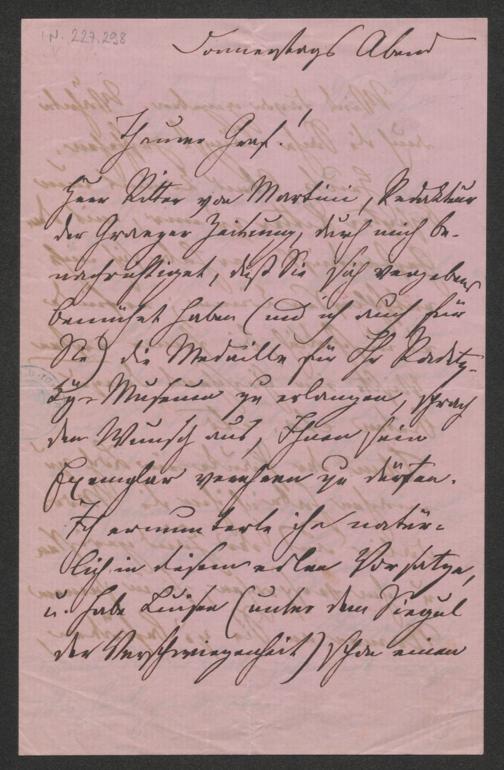 I.N. 227.298
Donnerstags Abend
Theurer Graf!
Herr Ritter von Martini, Redakteur
der Grazer Zeitung, durch mich be-
nachrichtiget, daß Sie sich vergebens
bemühet haben (und ich auch für
Sie) die Medaille für Ihr Radetz-
ky-Museum zu erlangen, sprach
den Wunsch aus, Ihnen sein
Exemplar verehren zu dürfen.
Ich ermunterte ihn natür-
lich in diesem edlen Vorsatze,
u. habe Luisen (unter dem Siegel
der Verschwiegenheit) schon einen